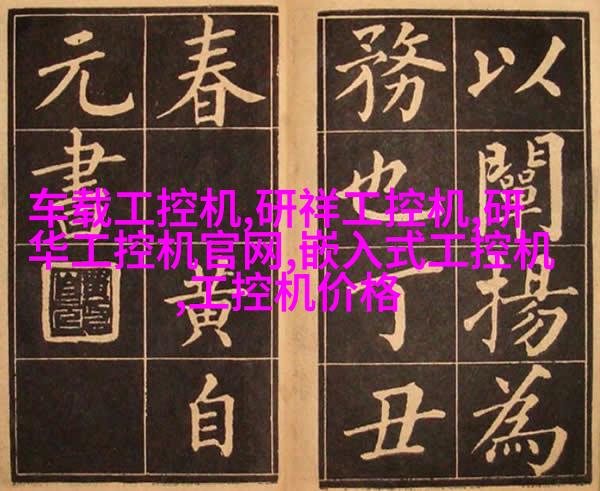 以闡揚為
務也丁丑
春黃自
元書
车载工控机,研祥工控机,研
华工控机官网,嵌入式工控机
,工控机价格